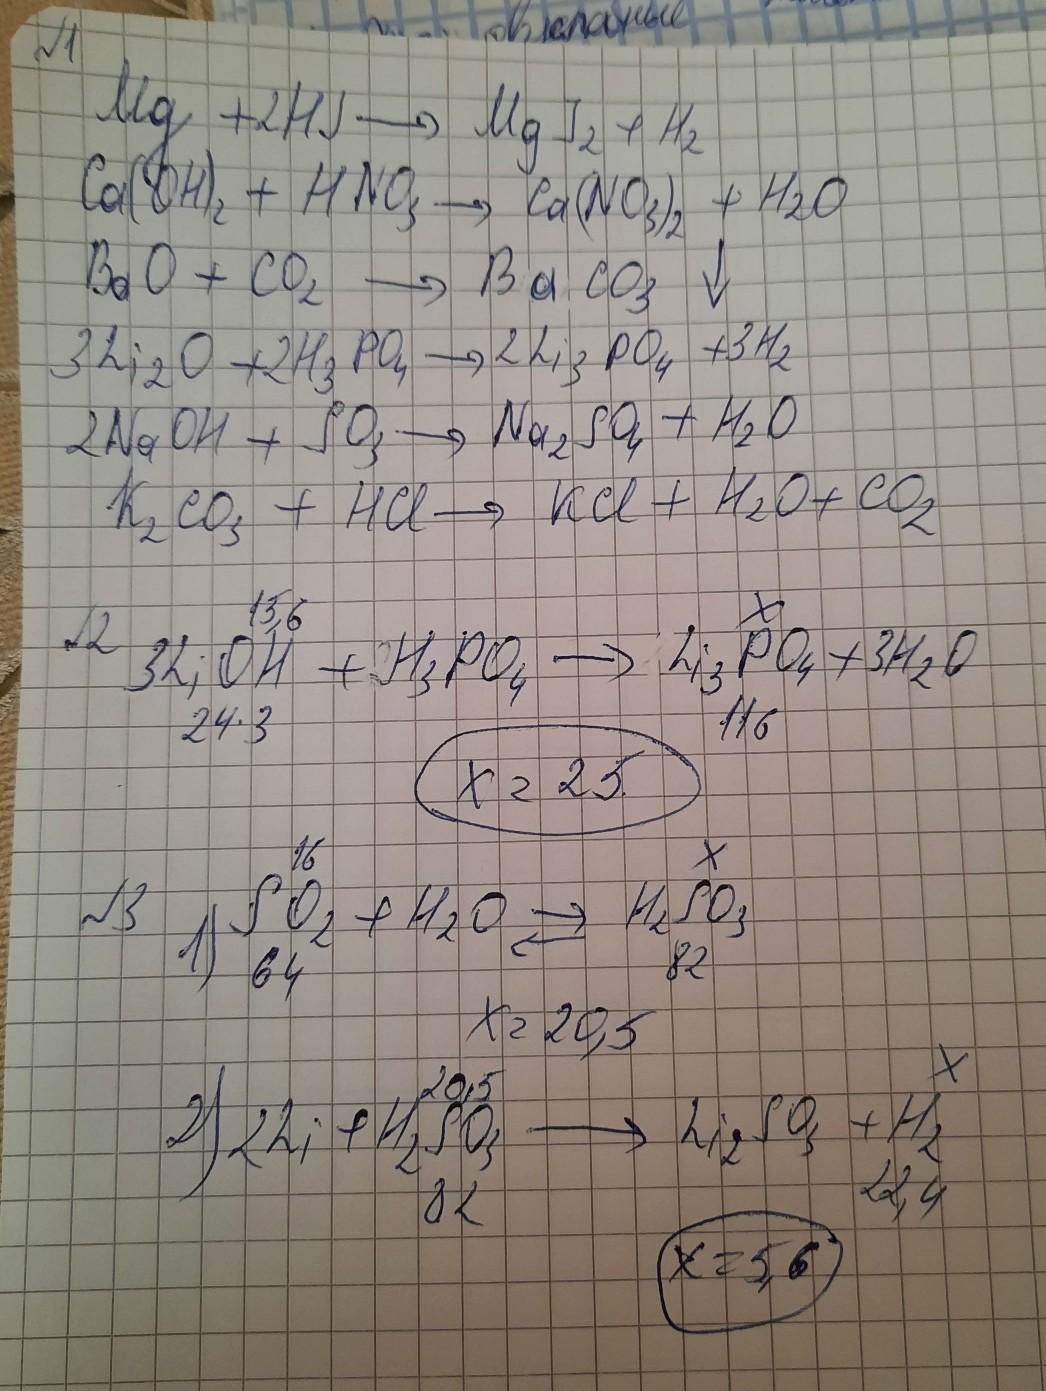 овклапные
№1
Mg + 2HJ → MgJ₂ + H₂
Ca(OH)₂ + HNO₃ → Ca(NO₃)₂ + H₂O
BaO + CO₂ → BaCO₃ ↓
3Li₂O + 2H₃PO₄ → 2Li₃PO₄ + 3H₂
2NaOH + SO₃ → Na₂SO₄ + H₂O
K₂CO₃ + HCl → KCl + H₂O + CO₂
15,6 x
№2 3LiOH + H₃PO₄ → Li₃PO₄ + 3H₂O
24·3 116
x = 25
16 x
№3 1) SO₂ + H₂O ⇄ H₂SO₃
64 82
x = 20,5
20,5 x
2) 2Li + H₂SO₃ → Li₂SO₃ + H₂
82 22,4
x = 5,6